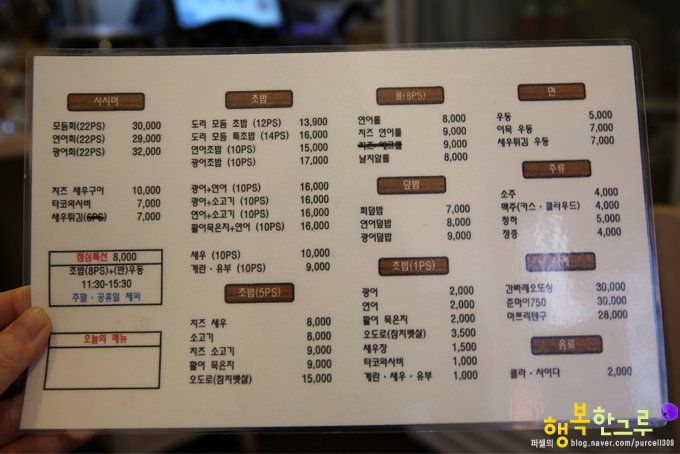 사시미
모듬회(22PS) 30,000
연어회(22PS) 29,000
광어회(22PS) 32,000
치즈 새우구이 10,000
타코와사비 7,000
새우튀김(5PS) 7,000
점심특선 8,000
초밥(8PS)+(반)우동
11:30-15:30
주말·공휴일 제외
오늘의 메뉴
초밥
도리 모듬 초밥 (12PS) 13,900
도리 모듬 특초밥 (14PS) 16,000
연어초밥 (10PS) 15,000
광어초밥 (10PS) 17,000
광어+연어 (10PS) 16,000
광어+소고기 (10PS) 16,000
연어+소고기 (10PS) 16,000
활어묵은지+연어 (10PS) 16,000
새우 (10PS) 10,000
계란·유부 (10PS) 9,000
초밥(5PS)
치즈 새우 8,000
소고기 8,000
치즈 소고기 9,000
활어 묵은지 9,000
오도로(참치뱃살) 15,000
롤(8PS)
연어롤 8,000
치즈 연어롤 9,000
치즈 9,000
날치알롤 8,000
덮밥
회덮밥 7,000
연어덮밥 8,000
광어덮밥 9,000
초밥(1PS)
광어 2,000
연어 2,000
활어 묵은지 2,000
오도로(참치뱃살) 3,500
새우장 1,500
타코와사비 1,000
계란·새우·유부 1,000
면
우동 5,000
어묵 우동 7,000
새우튀김 우동 7,000
주류
소주 4,000
맥주(카스·클라우드) 4,000
청하 5,000
청종 4,000
사케
간빠레오또상 30,000
준마이750 30,000
마쯔리텐구 28,000
음료
콜라·사이다 2,000
행복한그루
퍼셀의 blog.naver.com/purcell309